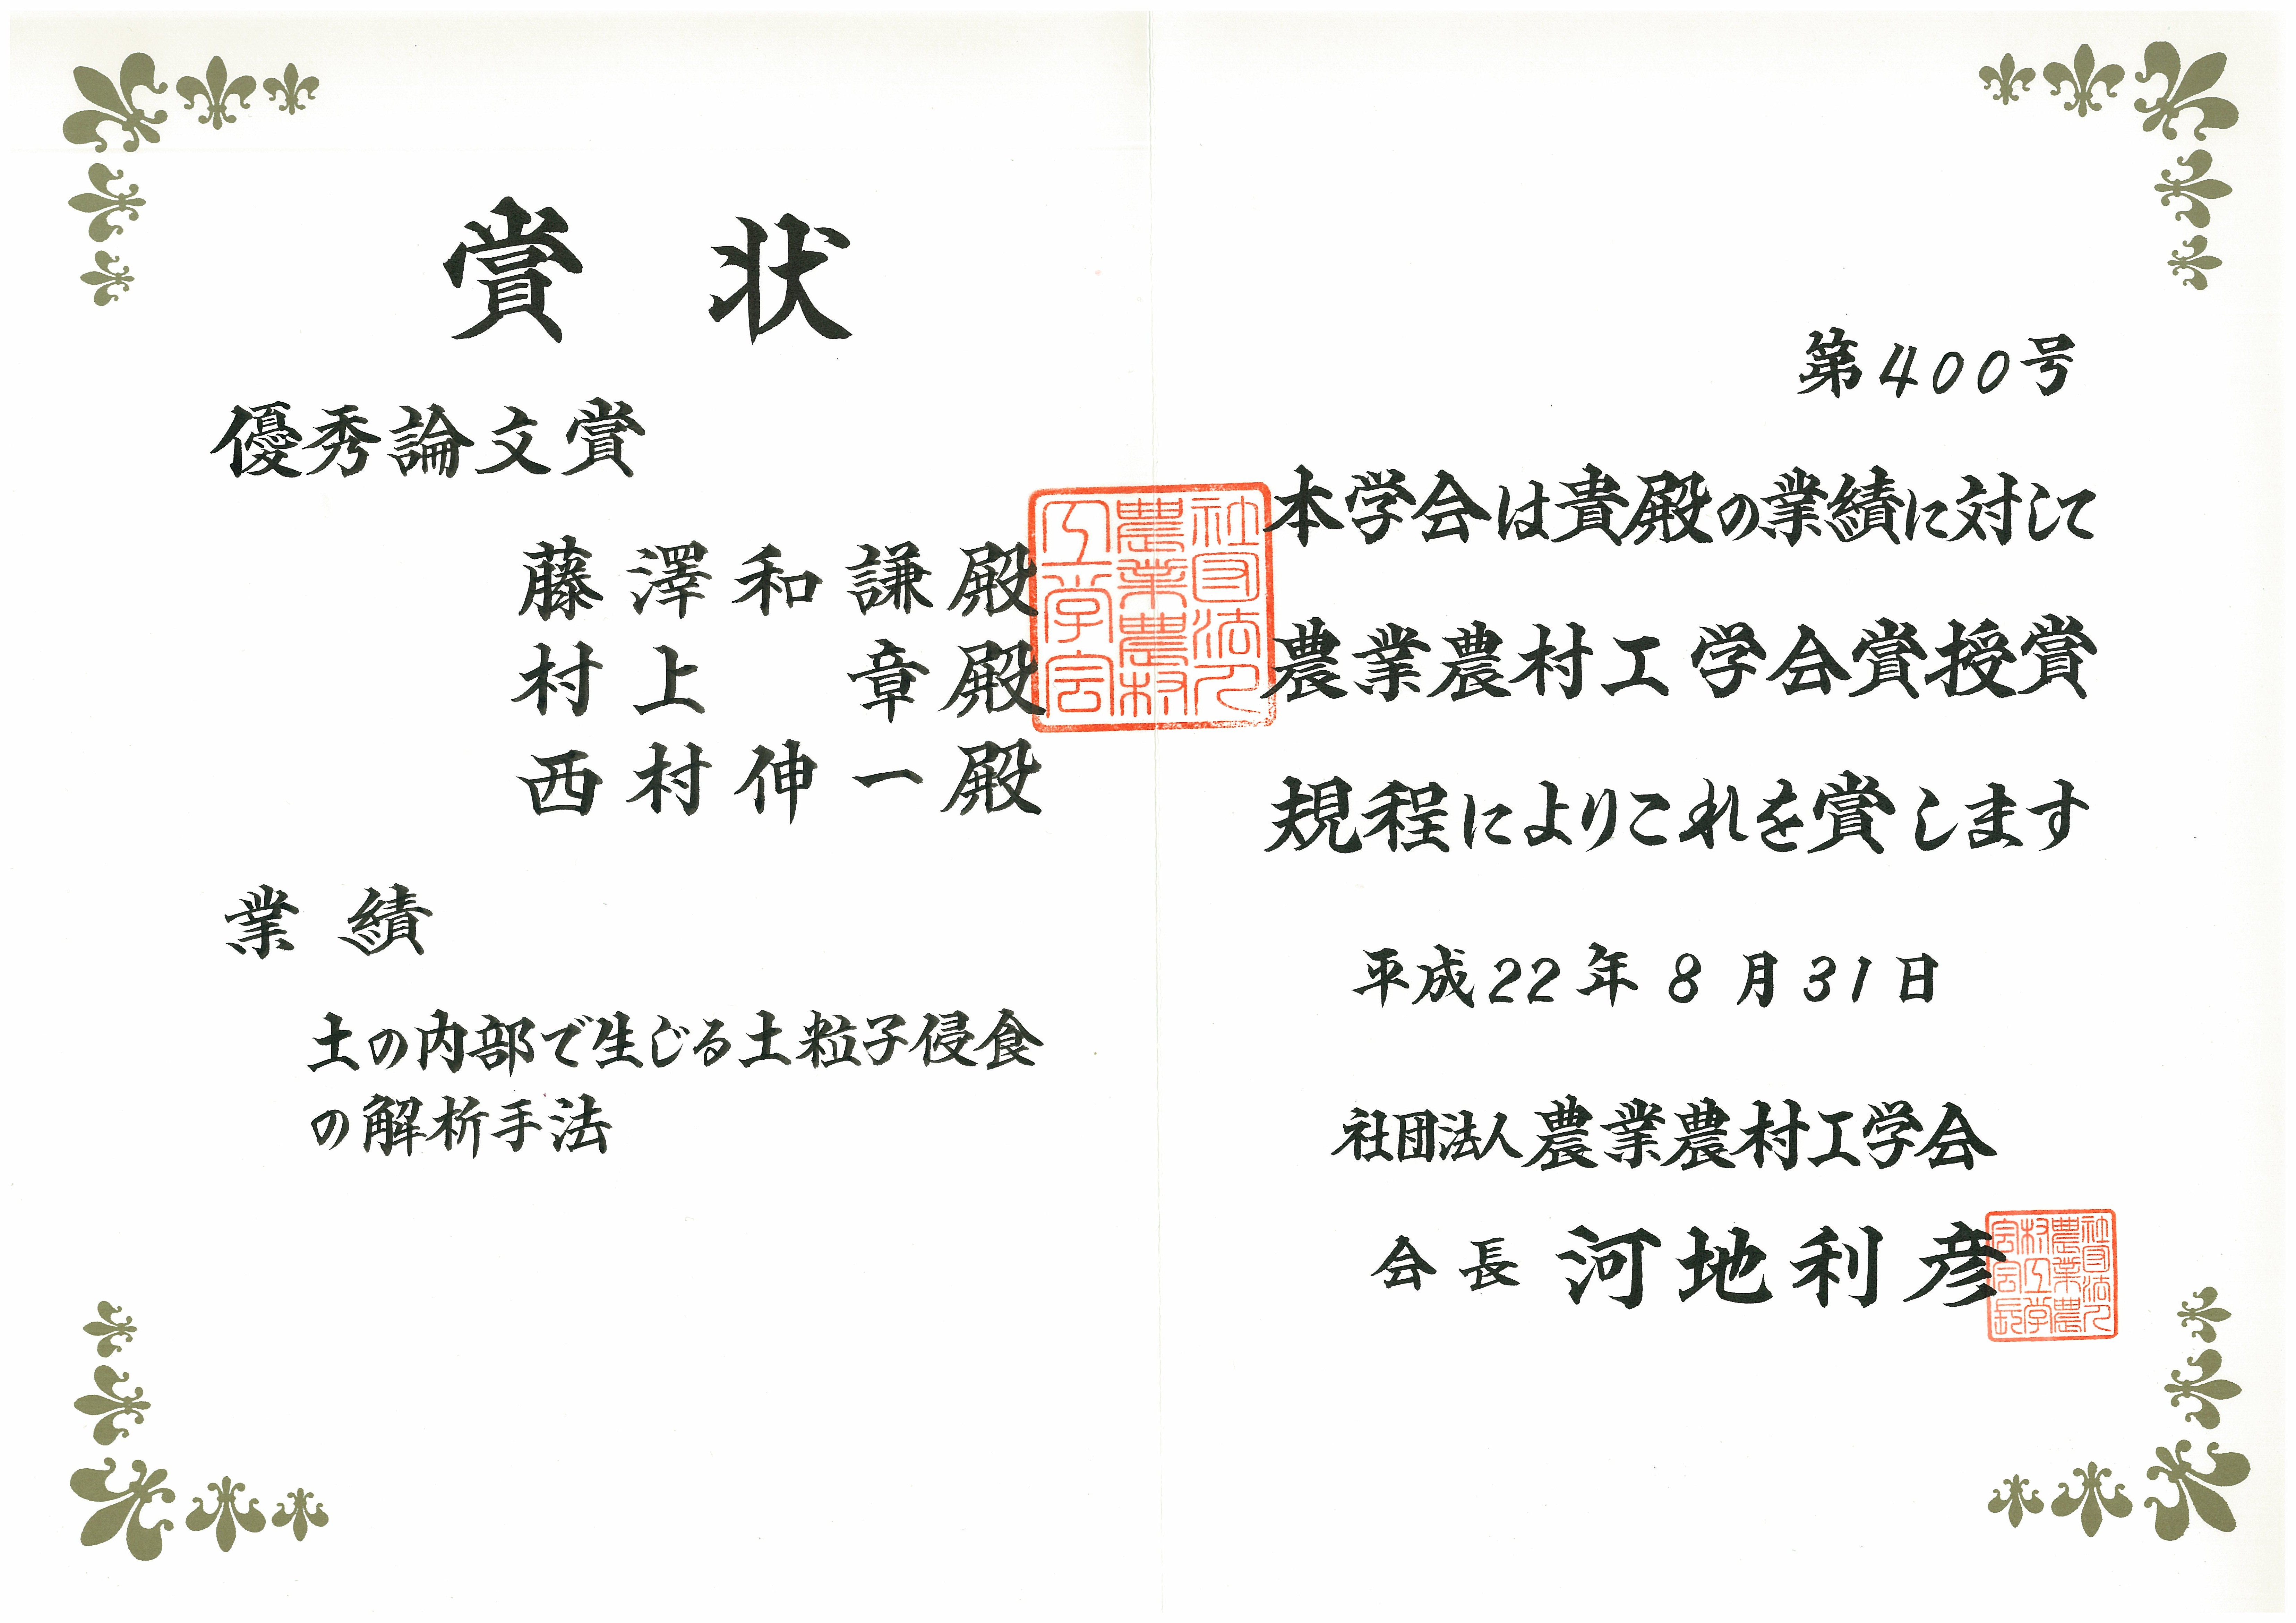 賞状
優秀論文賞
藤澤和謙殿
村上章殿
西村伸一殿
業績
土の内部で生じる土粒子侵食
の解析手法
第400号
本学会は貴殿の業績に対して
農業農村工学会賞授賞
規程によりこれを賞します
平成22年8月31日
社団法人農業農村工学会
会長 河地利彦
社団法人
農業農村
工学会
社団法人
農業農
村工学
会会長